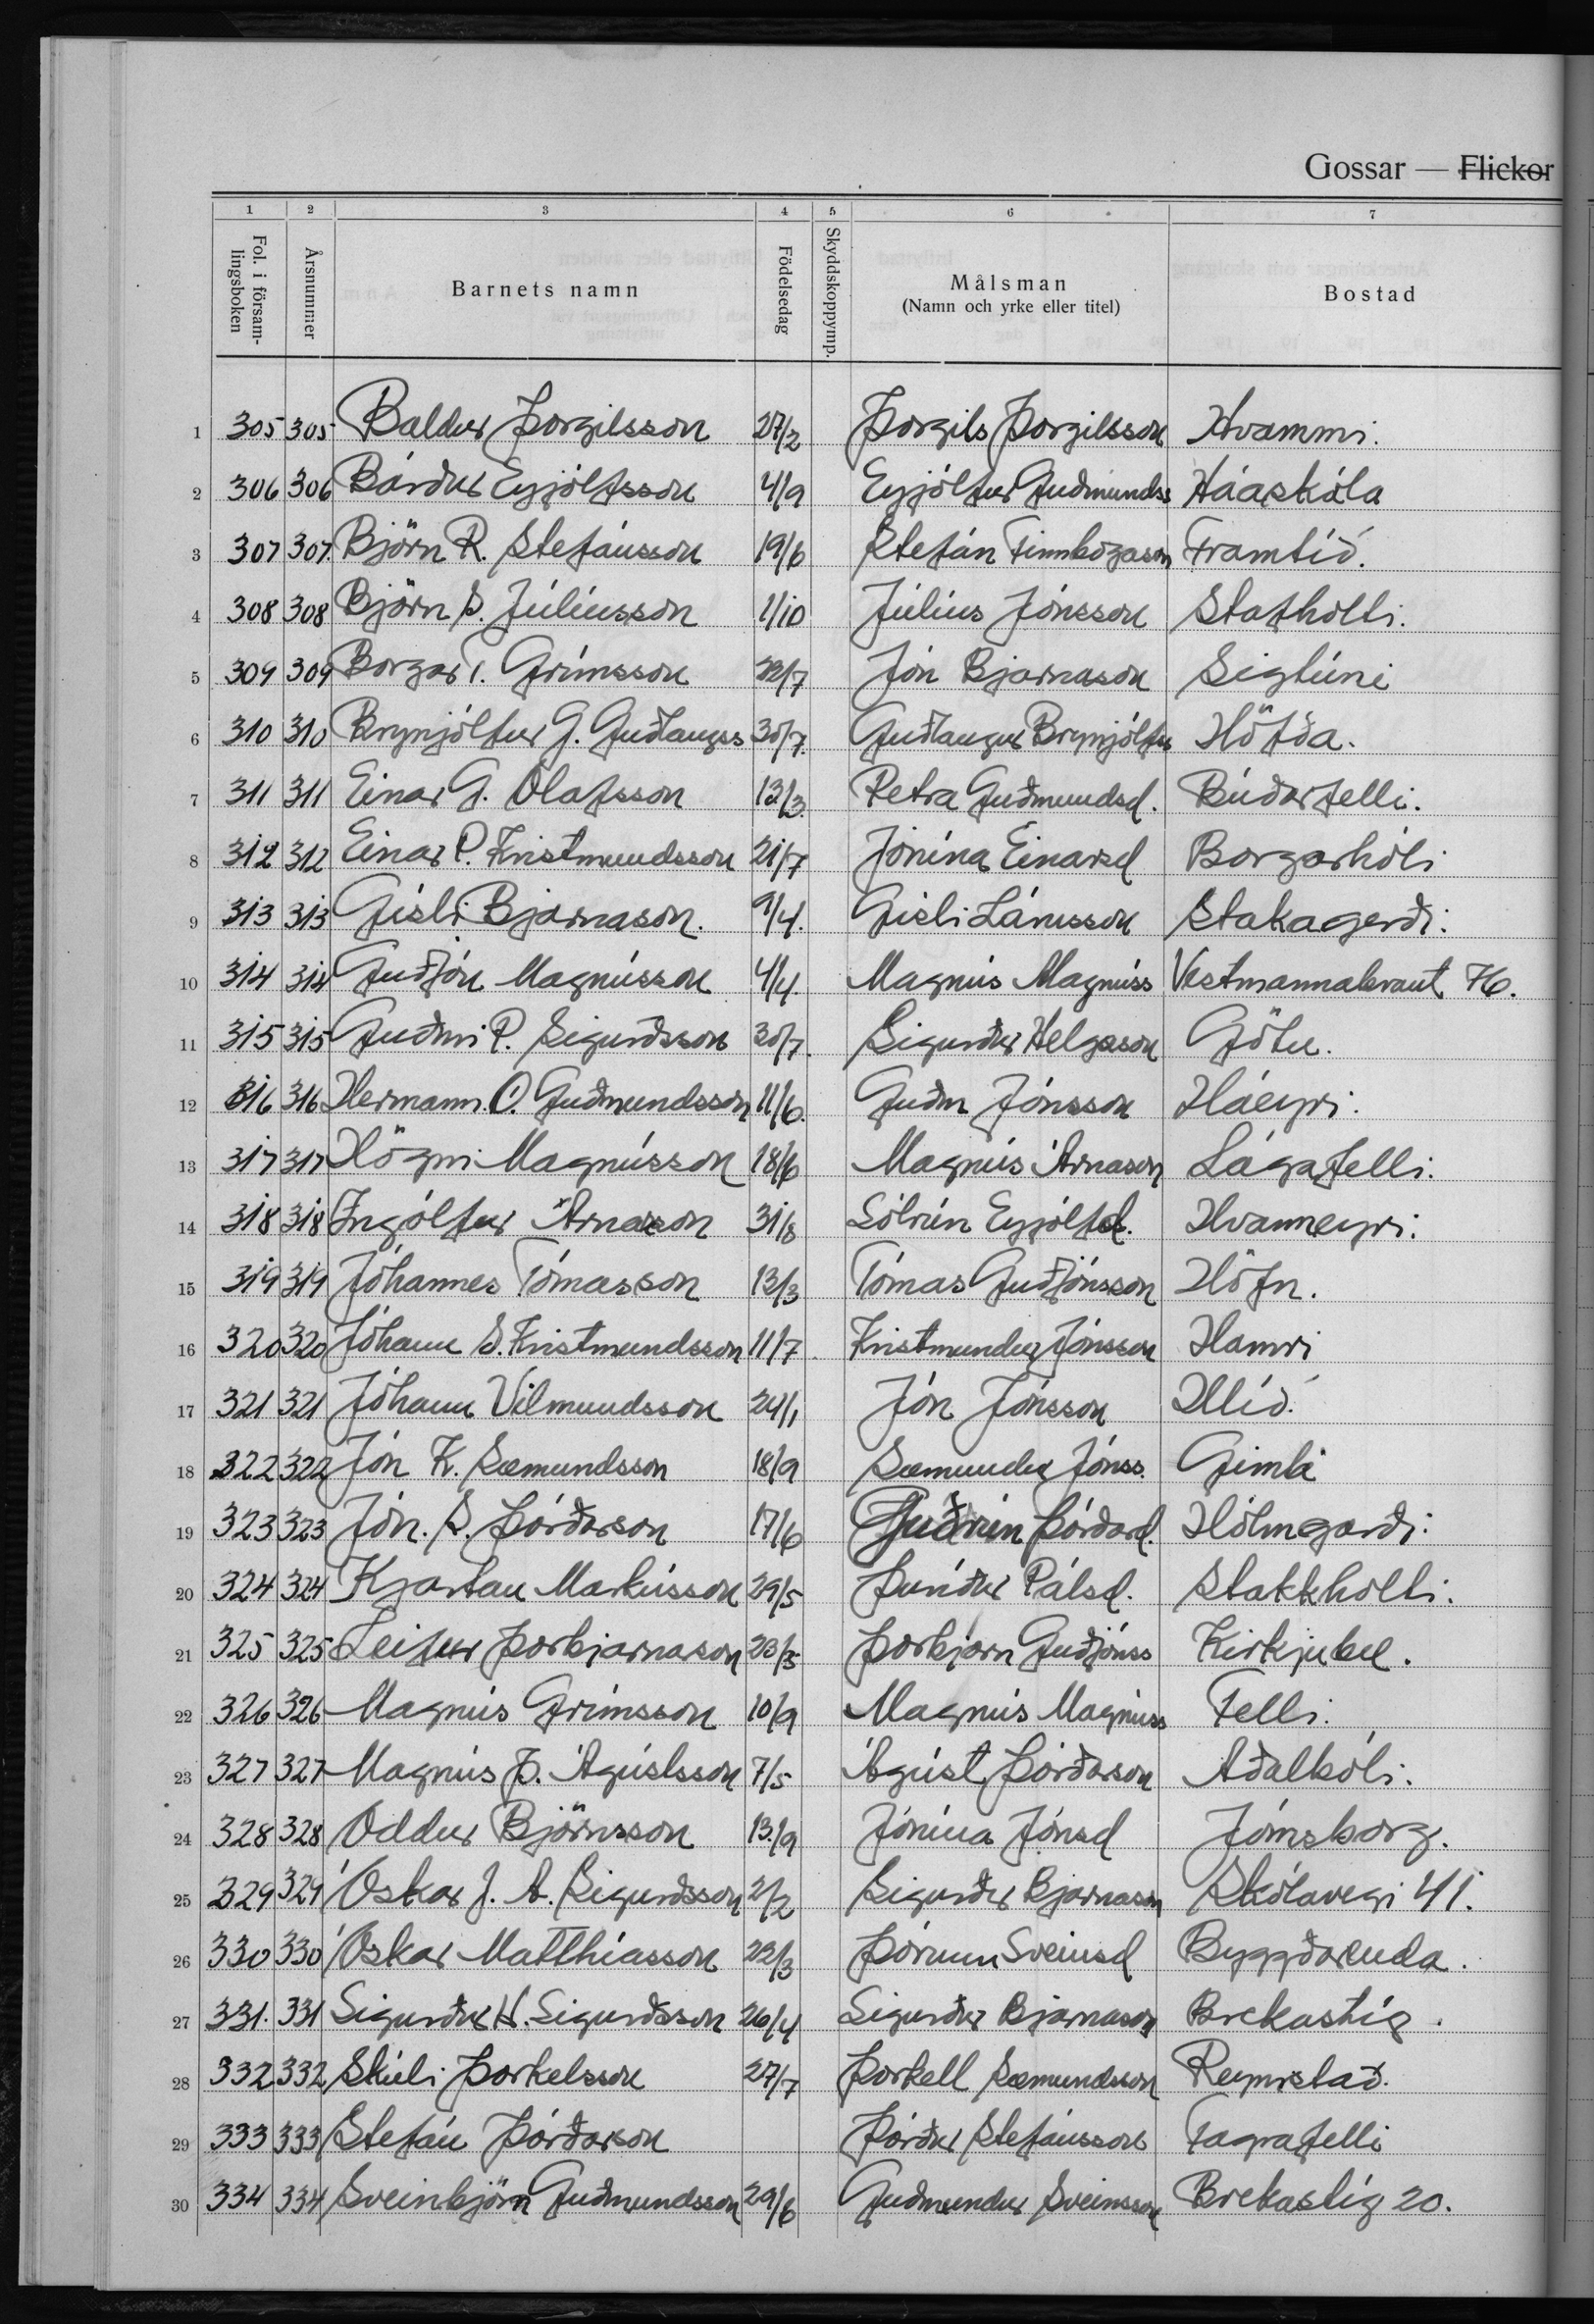 Gossar — Flickor
1 2 3 4 5 6 7
Fol. i försam-lingsboken Årsnummer Barnets namn Födelsedag Skyddskoppymp. Målsman (Namn och yrke eller titel) Bostad
1 305 305 Baldur Þorgilsson 27/2 Þorgils Þorgilsson Hvammi.
2 306 306 Bárður Eyjólfsson 4/9 Eyjólfur Guðmundss Háaskála
3 307 307. Björn R. Stefánsson 19/6 Stefán Finnbogason Framtíð.
4 308 308 Björn S. Júlíusson 1/10 Júlíus Jónsson Stafholti.
5 309 309 Borgar T. Grímsson 22/7 Jón Bjarnason Sigtúni
6 310 310 Brynjólfur G. Guðlaugss 30/7. Guðlaugur Brynjólfss Höfða.
7 311 311 Einar G. Ólafsson 13/3. Petra Guðmundsd. Búðarfelli.
8 312 312 Einar P. Kristmundsson 21/7 Jónína Einarsd Borgarhóli
9 313 313 Gísli Bjarnason. 9/4. Gísli Lárusson Stakagerði.
10 314 314 Guðjón Magnússon 4/4 Magnús Magnúss Vestmannabraut 76.
11 315 315 Guðni P. Sigurðsson 30/7. Sigurður Helgason Götu.
12 316 316 Hermann O. Guðmundsson 11/6. Guðm Jónsson Háeyri.
13 317 317 Högni Magnússon 18/6 Magnús Árnason Lágafelli.
14 318 318 Ingólfur Arnarson 31/8 Sólrún Eyjólfsd. Hvanneyri.
15 319 319 Jóhannes Tómasson 13/3 Tómas Guðjónsson Höfn.
16 320 320 Jóhann S. Kristmundsson 11/7. Kristmundur Jónsson Hamri
17 321 321 Jóhann Vilmundsson 24/1 Jón Jónsson Hlíð.
18 322 322 Jón K. Sæmundsson 18/9 Sæmundur Jónss. Gimli
19 323 323 Jón. S. Þórðarson 17/6 Guðrún Þórðard. Hólmgarði.
20 324 324 Kjartan Markússon 29/5 Þuríður Pálsd. Stakkholti.
21 325 325 Leifur Þorbjarnarson 23/5 Þorbjörn Guðjónss Kirkjubæ.
22 326 326 Magnús Grímsson 10/9 Magnús Magnúss Felli.
23 327 327 Magnús Þ. Ágústsson 7/5 Ágúst Þórðarson Aðalbóli.
24 328 328 Oddur Björnsson 13./9 Jónína Jónsd Jómsborg.
25 329 329 Óskar J. A. Sigurðsson 2/2 Sigurður Bjarnason Skólavegi 41.
26 330 330 Óskar Matthíasson 22/3 Þórunn Sveinsd Byggðarenda.
27 331. 331 Sigurður H. Sigurðsson 26/4 Sigurður Bjarnason Brekastíg.
28 332 332 Skúli Þorkelsson 27/7 Þorkell Sæmundsson Reynistað.
29 333 333 Stefán Þórðarson Þórður Stefánsson Fagrafelli
30 334 334 Sveinbjörn Guðmundsson 29/6 Guðmundur Sveinsson Brekastíg 20.